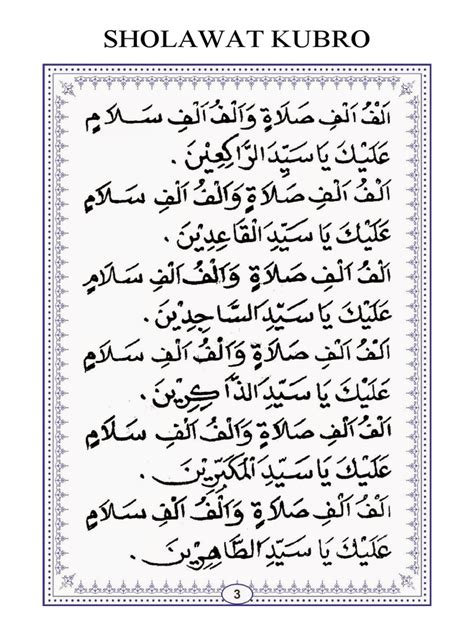 SHOLAWAT KUBRO
اَلْفُ اَلْفِ صَلَاةٍ وَاَلْفُ اَلْفِ سَلَامٍ
عَلَيْكَ يَا سَيِّدَ الرَّاكِعِيْنَ .
اَلْفُ اَلْفِ صَلَاةٍ وَاَلْفُ اَلْفِ سَلَامٍ
عَلَيْكَ يَا سَيِّدَ الْقَاعِدِيْنَ .
اَلْفُ اَلْفِ صَلَاةٍ وَاَلْفُ اَلْفِ سَلَامٍ
عَلَيْكَ يَا سَيِّدَ السَّاجِدِيْنَ .
اَلْفُ اَلْفِ صَلَاةٍ وَاَلْفُ اَلْفِ سَلَامٍ
عَلَيْكَ يَا سَيِّدَ الذَّاكِرِيْنَ .
اَلْفُ اَلْفِ صَلَاةٍ وَاَلْفُ اَلْفِ سَلَامٍ
عَلَيْكَ يَا سَيِّدَ الْمُكَبِّرِيْنَ .
اَلْفُ اَلْفِ صَلَاةٍ وَاَلْفُ اَلْفِ سَلَامٍ
عَلَيْكَ يَا سَيِّدَ الطَّاهِرِيْنَ .
3